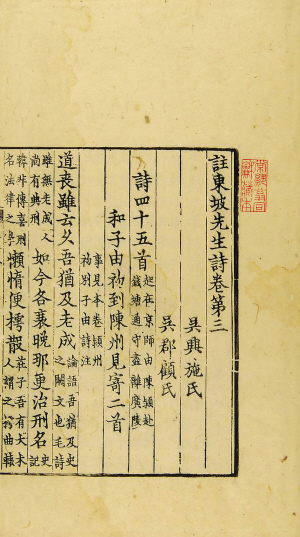 註東坡先生詩卷第三
吳興施氏
吳郡顧氏
詩四十五首 起在京師由陳潁赴
錢塘通守盡離廣陵
和子由初到陳州見寄二首
事見本卷潁州
初別子由詩注
道喪雖云久吾猶及老成 論語吾猶及史
之闕文也毛詩
雖無老成人
尚有典刑 如今各衰晚那更治刑名 史記
韓非傳喜刑
名法律之學 懶惰便樗散 莊子吾有大木
人謂之樗曲轅